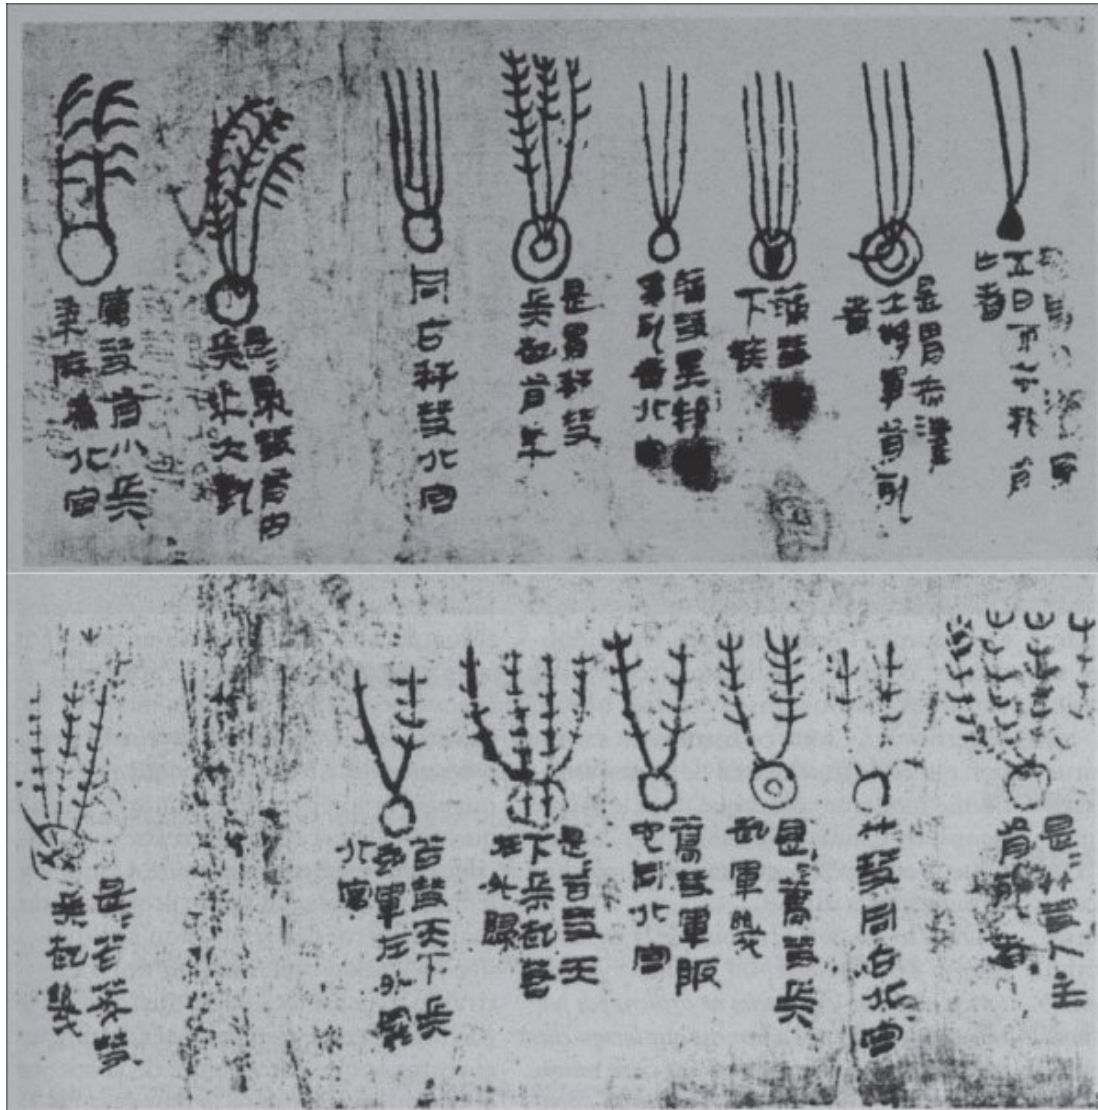 是胃赤灌
大將軍有死
者
蒲彗
下疾
蒲彗星邦
多死者北宮
是胃秆彗
兵起有年
同占秆彗北宮
是=帚彗有內
兵年大孰
厲彗有小兵
黍麻為北宮
是=竹彗人主
有死者
竹彗同占北宮
是=蒿彗兵
起軍幾
蒿彗軍阪
它同北宮
是=苫彗天
下兵起若
在外歸
苫彗天下兵
起軍在外罷
北宮
是=苫茇彗
兵起幾